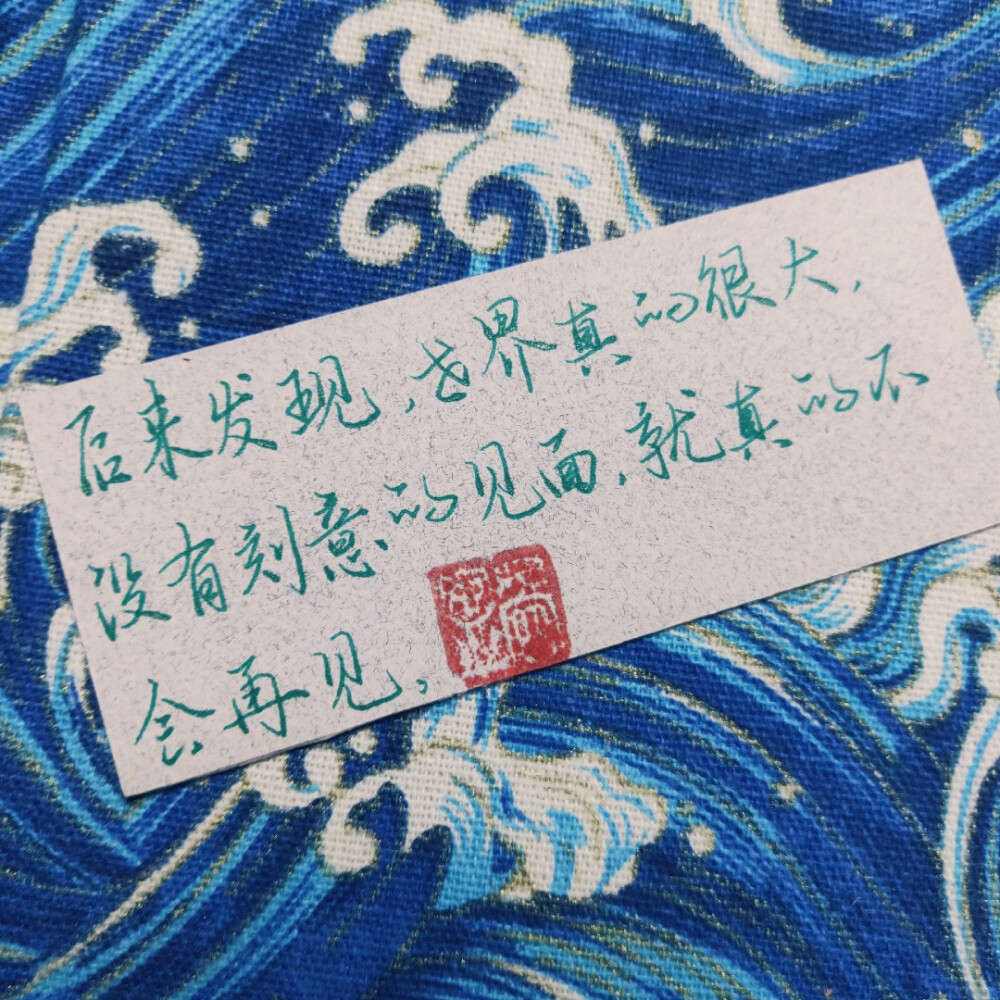 后来发现,世界真的很大,
没有刻意的见面,就真的不
会再见,